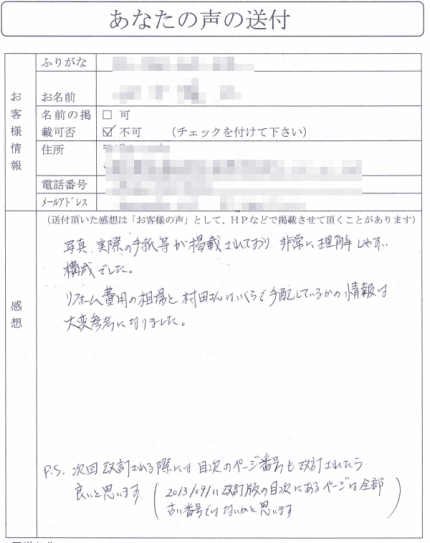 あなたの声の送付
ふりがな
お客様情報
お名前
名前の掲載可否
□ 可
☑ 不可 (チェックを付けて下さい)
住所
電話番号
メールアドレス
感想
(送付頂いた感想は「お客様の声」として、HPなどで掲載させて頂くことがあります)
写真、実際の手紙等が掲載されており、非常に理解しやすい
構成でした。
リフォーム費用の相場と村田さんはいくらで手配しているかの情報は
大変参考になりました。
P.S. 次回改訂される際には目次のページ番号も改訂されたら
良いと思います
(2013/09/11改訂版の目次にあるページは全部
古い番号ではないかと思います)